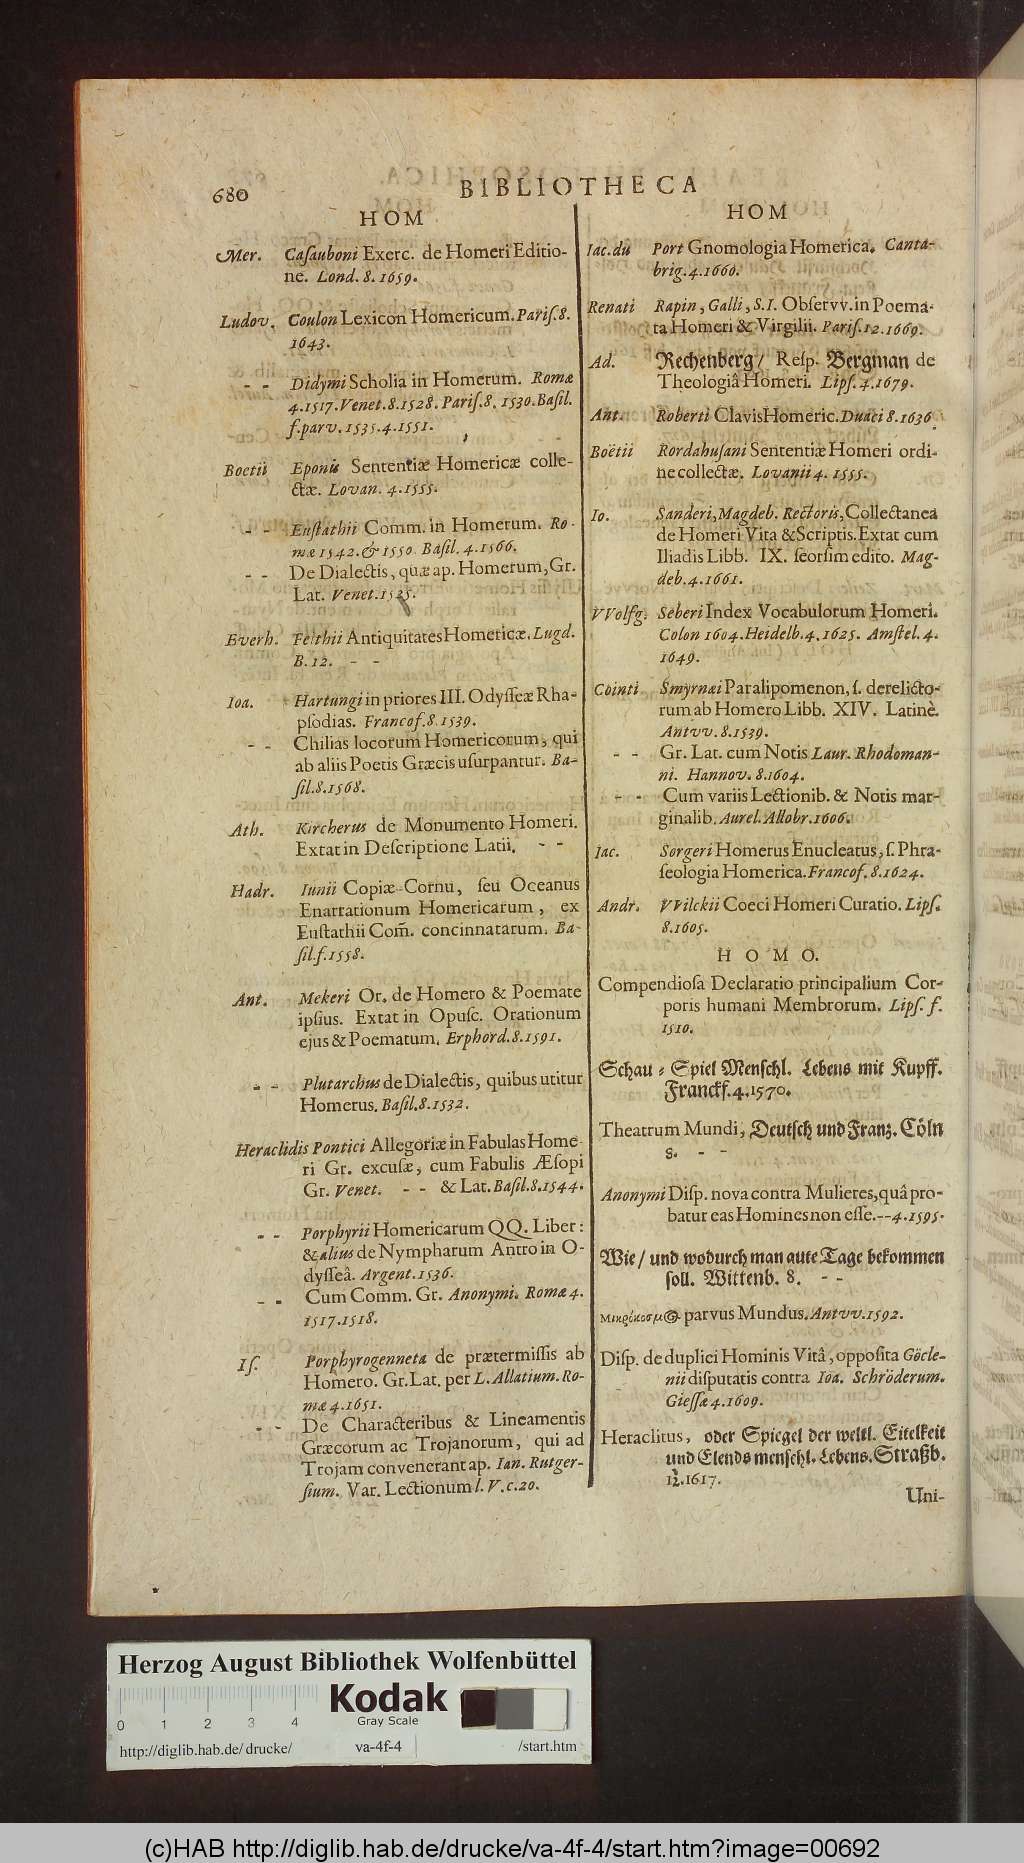 680
BIBLIOTHECA
HOM
Mer. Caſauboni Exerc. de Homeri Editio-
ne. Lond. 8. 1659.
Ludov. Coulon Lexicon Homericum. Pariſ. 8.
1643.
- - Didymi Scholia in Homerum. Romæ
4. 1517. Venet. 8. 1528. Pariſ. 8. 1530. Baſil.
f. parv. 1535. 4. 1551.
Boetii Eponis Sententiæ Homericæ colle-
ctæ. Lovan. 4. 1555.
- - Euſtathii Comm. in Homerum. Ro-
mæ 1542. & 1550. Baſil. 4. 1566.
- - De Dialectis, quæ ap. Homerum, Gr.
Lat. Venet. 1525.
Everh. Feithii Antiquitates Homericæ. Lugd.
B. 12. - -
Ioa. Hartungi in priores III. Odyſſeæ Rha-
pſodias. Francof. 8. 1539.
- - Chilias locorum Homericorum, qui
ab aliis Poetis Græcis uſurpantur. Ba-
ſil. 8. 1568.
Ath. Kircherus de Monumento Homeri.
Extat in Deſcriptione Latii. - -
Hadr. Iunii Copiæ Cornu, ſeu Oceanus
Enarrationum Homericarum, ex
Euſtathii Com̃. concinnatarum. Ba-
ſil. f. 1558.
Ant. Mekeri Or. de Homero & Poemate
ipſius. Extat in Opuſc. Orationum
ejus & Poematum. Erphord. 8. 1591.
- - Plutarchus de Dialectis, quibus utitur
Homerus. Baſil. 8. 1532.
Heraclidis Pontici Allegoriæ in Fabulas Home-
ri Gr. excuſæ, cum Fabulis Æſopi
Gr. Venet. - - & Lat. Baſil. 8. 1544.
- - Porphyrii Homericarum QQ. Liber:
& alius de Nympharum Antro in O-
dyſſeâ. Argent. 1536.
- - Cum Comm. Gr. Anonymi. Romæ 4.
1517. 1518.
Iſ. Porphyrogenneta de prætermiſſis ab
Homero. Gr. Lat. per L. Allatium. Ro-
mæ 4. 1651.
- - De Characteribus & Lineamentis
Græcorum ac Trojanorum, qui ad
Trojam convenerant ap. Ian. Rutger-
ſium. Var. Lectionum l. V. c. 20.
HOM
Iac. du Port Gnomologia Homerica. Canta-
brig. 4. 1660.
Renati Rapin, Galli, S. I. Obſervv. in Poema-
ta Homeri & Virgilii. Pariſ. 12. 1669.
Ad. Rechenberg/ Reſp. Bergman de
Theologiâ Homeri. Lipſ. 4. 1679.
Ant. Roberti Clavis Homeric. Duaci 8. 1636.
Boëtii Rordahuſani Sententiæ Homeri ordi-
ne collectæ. Lovanii 4. 1555.
Io. Sanderi, Magdeb. Rectoris, Collectanea
de Homeri Vita & Scriptis. Extat cum
Iliadis Libb. IX. ſeorſim edito. Mag-
deb. 4. 1661.
VVolfg. Seberi Index Vocabulorum Homeri.
Colon 1604. Heidelb. 4. 1625. Amſtel. 4.
1649.
Cointi Smyrnæi Paralipomenon, ſ. derelicto-
rum ab Homero Libb. XIV. Latinè.
Antvv. 8. 1539.
- - Gr. Lat. cum Notis Laur. Rhodoman-
ni. Hannov. 8. 1604.
- - Cum variis Lectionib. & Notis mar-
ginalib. Aurel. Allobr. 1606.
Iac. Sorgeri Homerus Enucleatus, ſ. Phra-
ſeologia Homerica. Francof. 8. 1624.
Andr. VVilckii Coeci Homeri Curatio. Lipſ.
8. 1605.
HOMO.
Compendioſa Declaratio principalium Cor-
poris humani Membrorum. Lipſ. f.
1510.
Schau-Spiel Menſchl. Lebens mit Kupff.
Franckf. 4. 1570.
Theatrum Mundi, Deutſch und Franz. Cöln
8. - -
Anonymi Diſp. nova contra Mulieres, quâ pro-
batur eas Homines non eſſe. -- 4. 1595.
Wie/ und wodurch man gute Tage bekommen
ſoll. Wittenb. 8. - -
Μικρόκοσμ@ parvus Mundus. Antvv. 1592.
Diſp. de duplici Hominis Vitâ, oppoſita Gocle-
nii diſputatis contra Ioa. Schröderum.
Gieſſæ 4. 1609.
Heraclitus, oder Spiegel der weltl. Eitelkeit
und Elends menſchl. Lebens. Straßb.
12. 1617.
Uni-
Herzog August Bibliothek Wolfenbüttel
Kodak
Gray Scale
0 1 2 3 4
http://diglib.hab.de/drucke/ va-4f-4 /start.htm
(c)HAB http://diglib.hab.de/drucke/va-4f-4/start.htm?image=00692